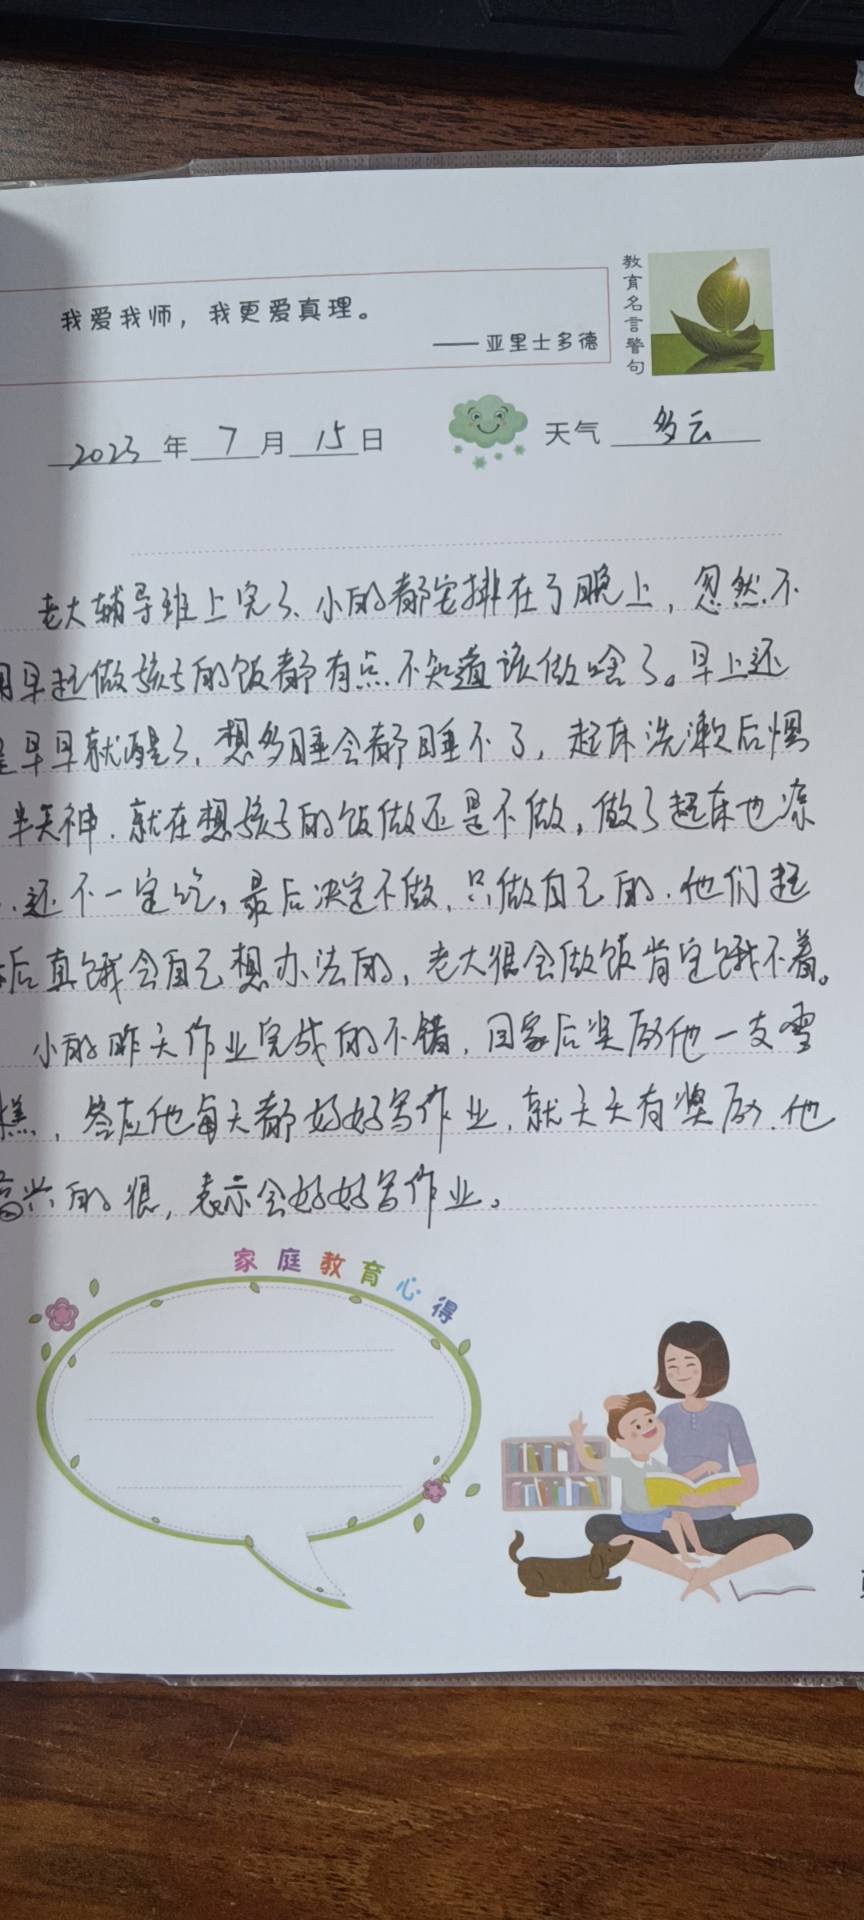 我爱我师，我更爱真理。
——亚里士多德
教育名言警句
2023年7月15日 天气 多云
老大辅导班上完了、小的都安排在了晚上，忽然不
用早起做孩子的饭都有点不知道该做啥了。早上还
是早早就醒了，想多睡会都睡不了，起床洗漱后愣
半天神．就在想孩子的饭做还是不做，做了起床也凉
．还不一定吃，最后决定不做，只做自己的．他们起
床后真饿会自己想办法的，老大很会做饭肯定饿不着。
小的昨天作业完成的不错，回家后奖励他一支雪
糕，答应他每天都好好写作业，就天天有奖励．他
高兴的很，表示会好好写作业。
家庭教育心得